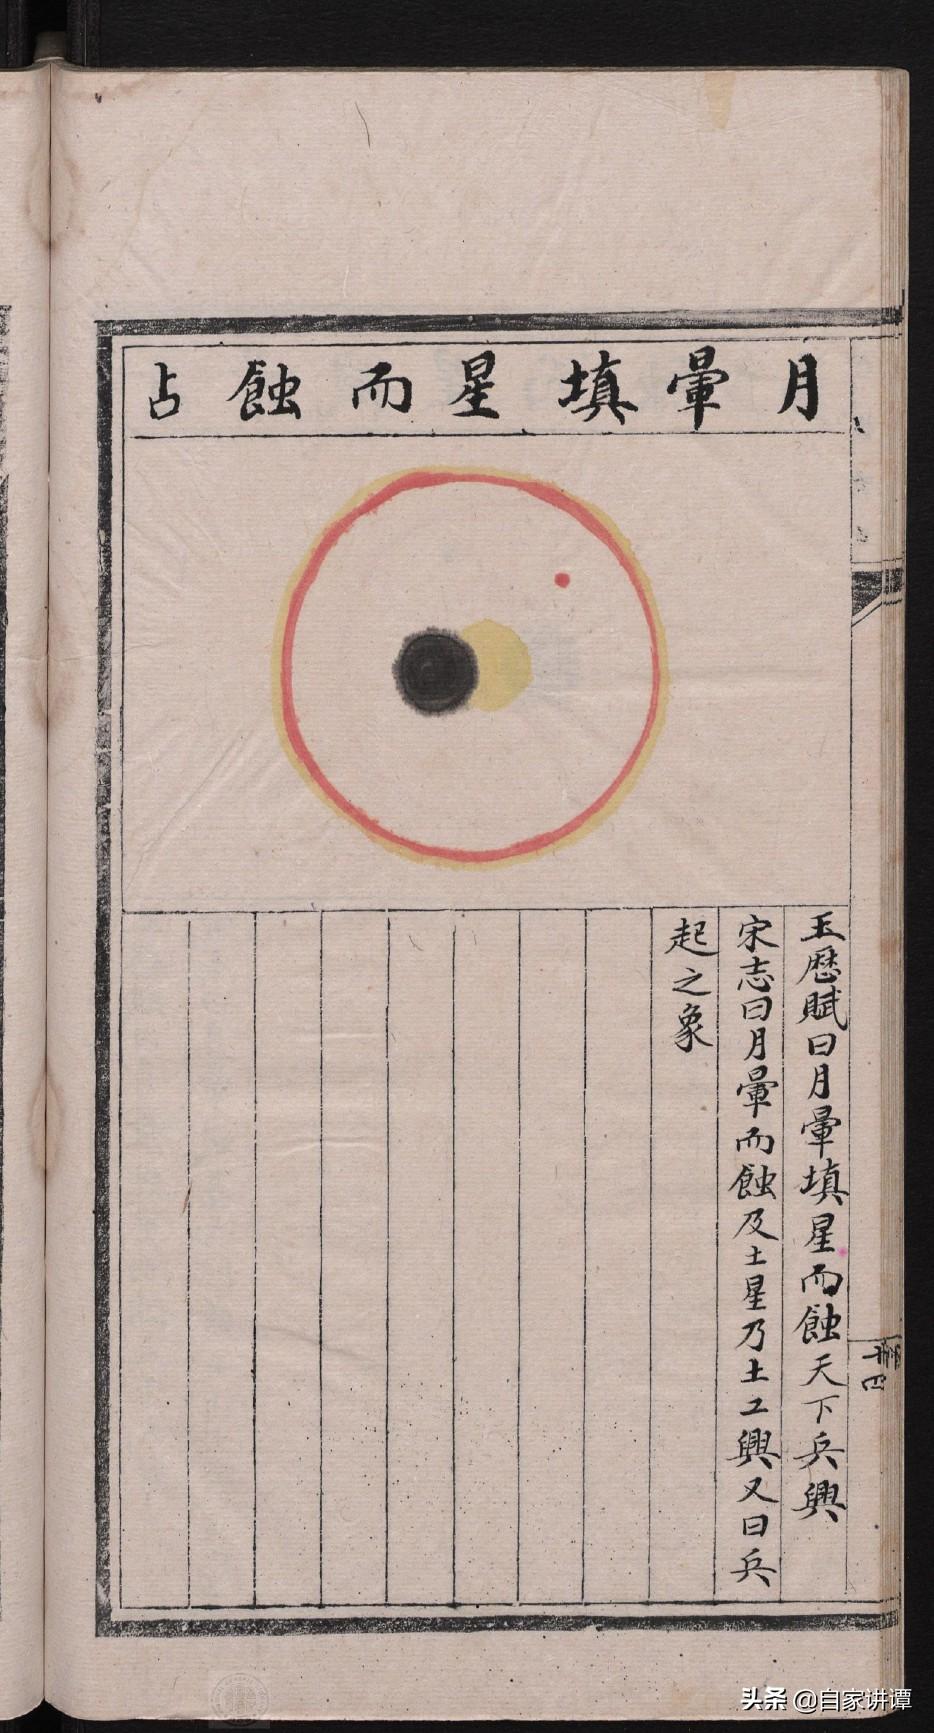 月暈填星而蝕占
玉曆賦曰月暈填星而蝕天下兵興
宋志曰月暈而蝕及土星乃土工興又曰兵
起之象
头条 @自家讲谭